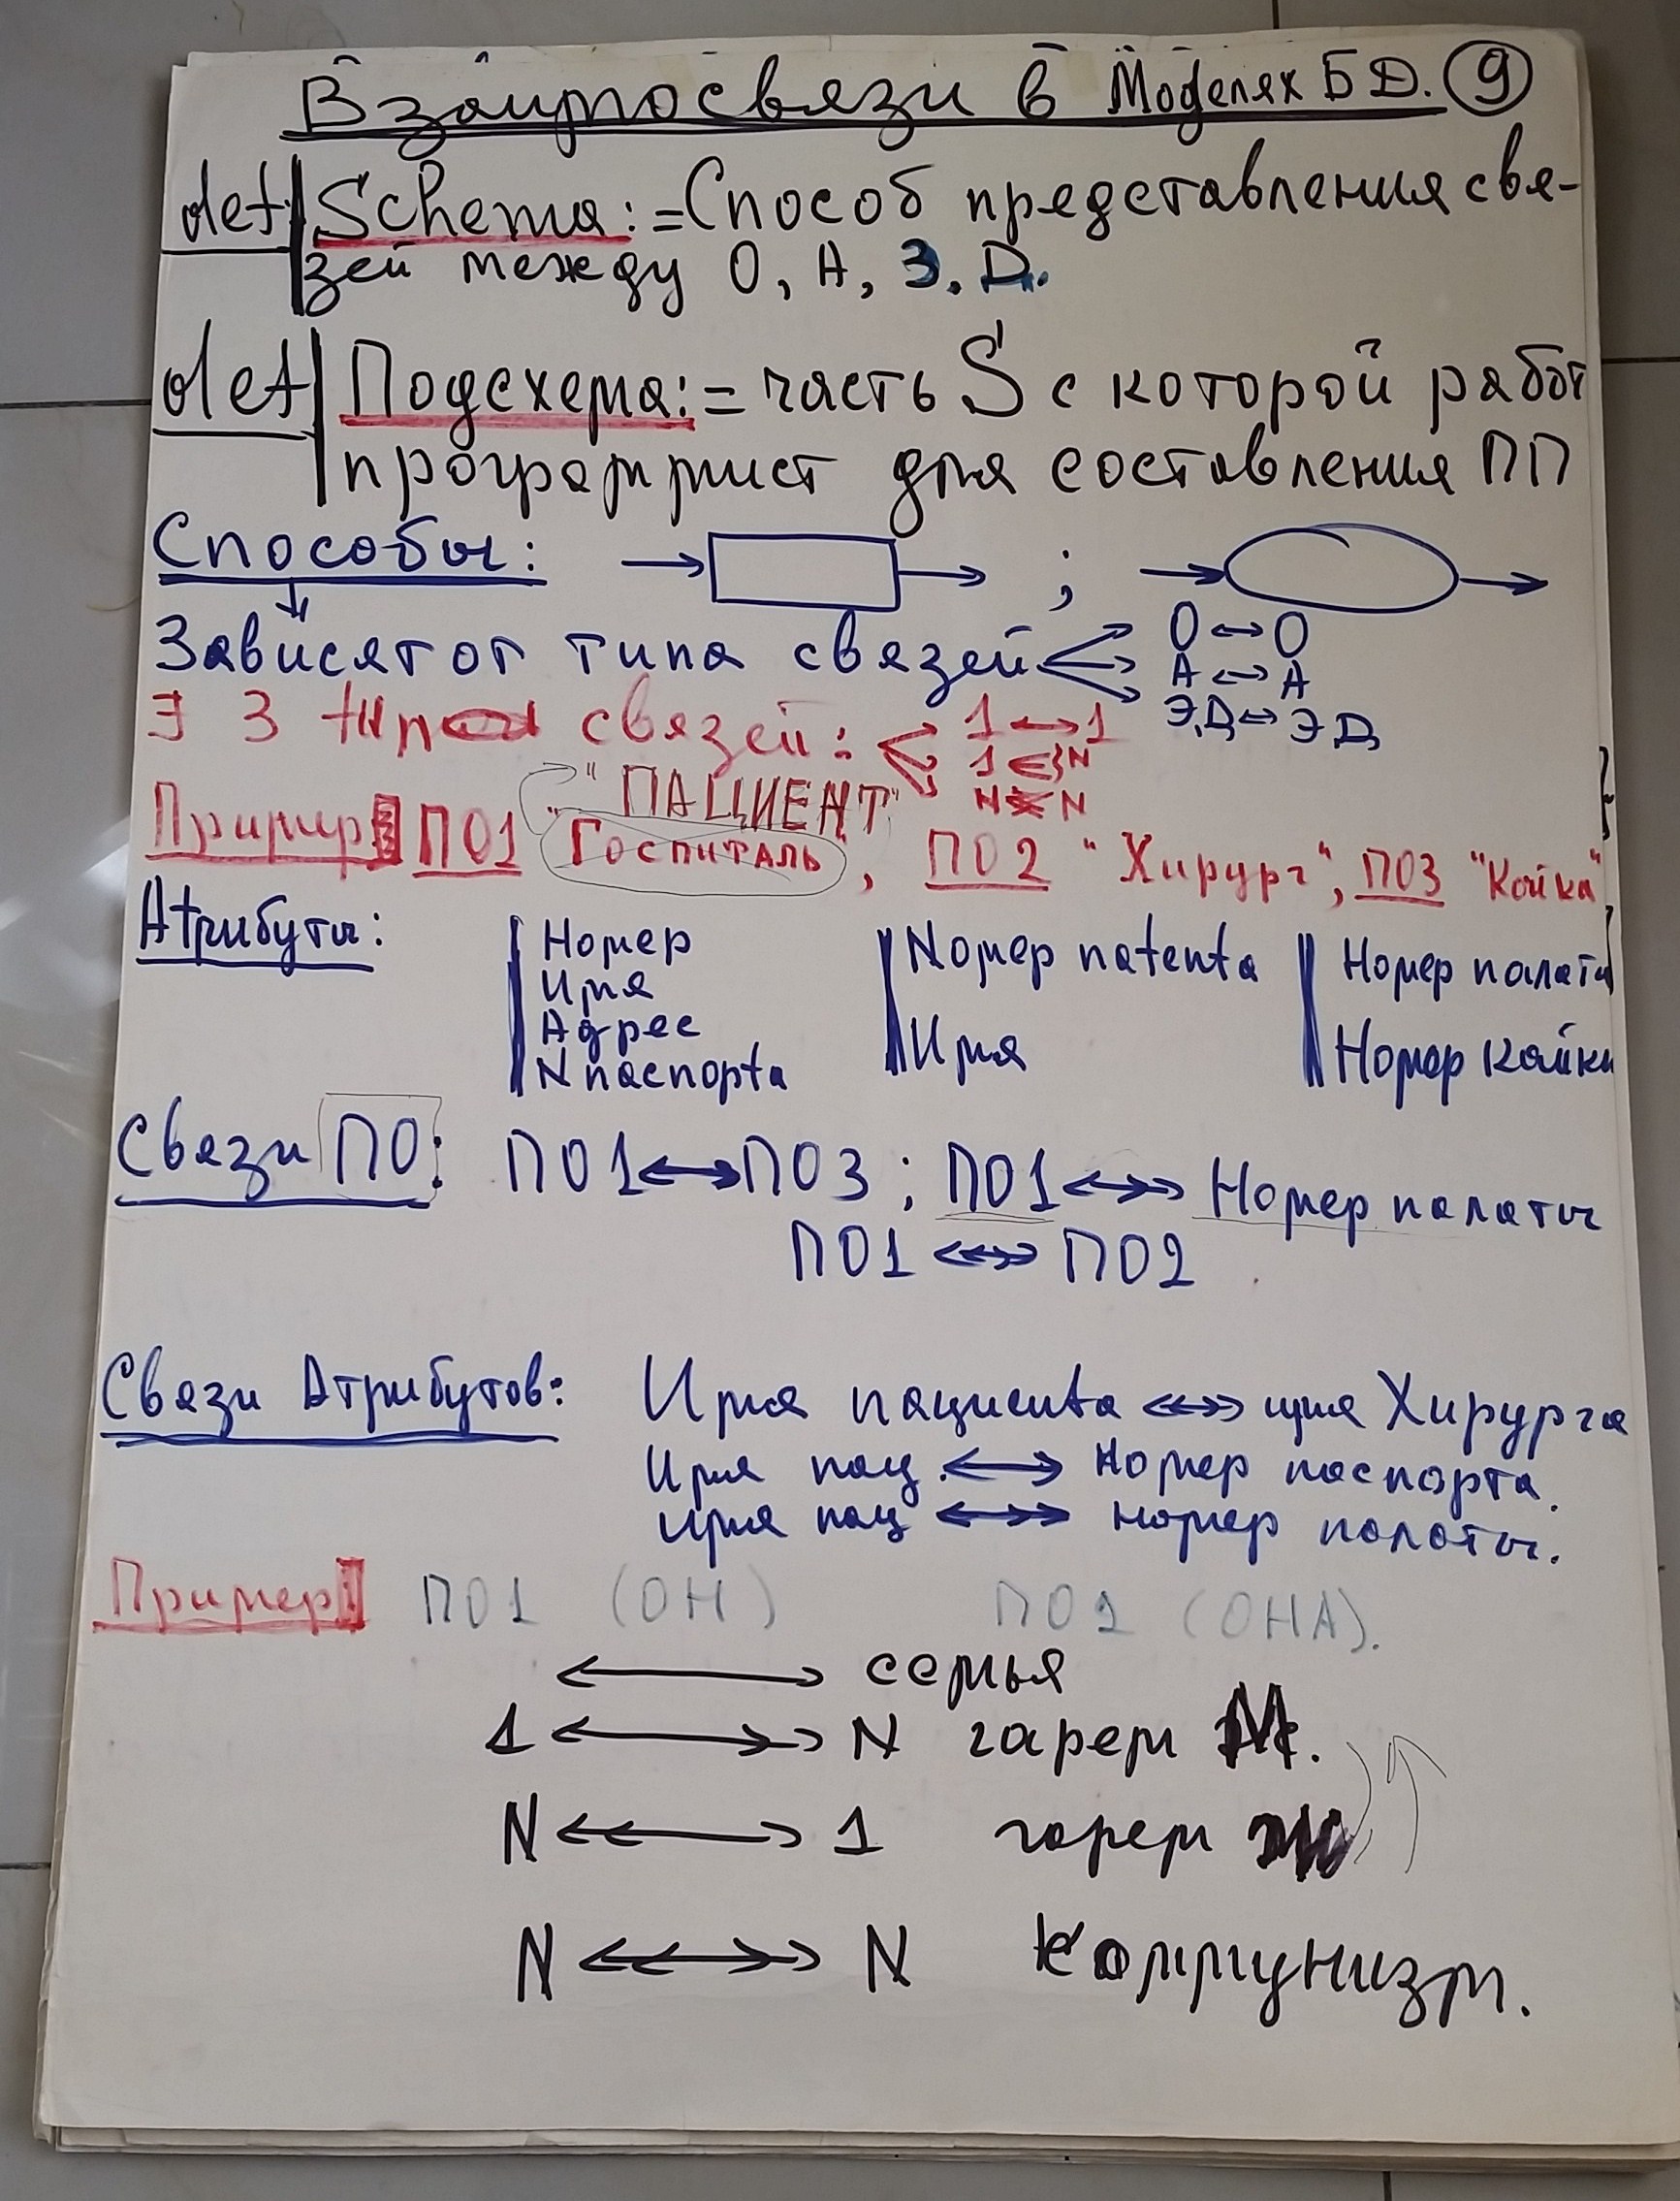 Взаимосвязи в Моделях БД. 9
def Schema:=Способ представления свя-
зей между О, А, Э.Д.
def Подсхема:= часть S с которой работ
программист для составления ПП
Способы: ;
Зависят от типа связей О ↔ О
А ↔ А
Э.Д ↔ ЭД
∃ 3 типа связей: 1 ↔ 1
1 ↔ N
N ↔ N
"ПАЦИЕНТ"
Пример: ПО1 "Госпиталь", ПО2 "Хирург", ПО3 "Койка"
Атрибуты: Номер
Имя
Адрес
N паспорта
Номер патента
Имя
Номер палаты
Номер Койки
Связи ПО: ПО1 ↔ ПО3 ; ПО1 ↔ Номер палаты
ПО1 ↔ ПО2
Связи Атрибутов: Имя пациента ↔ имя Хирурга
Имя пац. ↔ Номер паспорта.
имя пац ↔ номер палаты.
Пример: ПО1 (ОН) ПО2 (ОНА).
↔ семья
1 ↔ N гарем М.
N ↔ 1 гарем
N ↔ N Коммунизм.